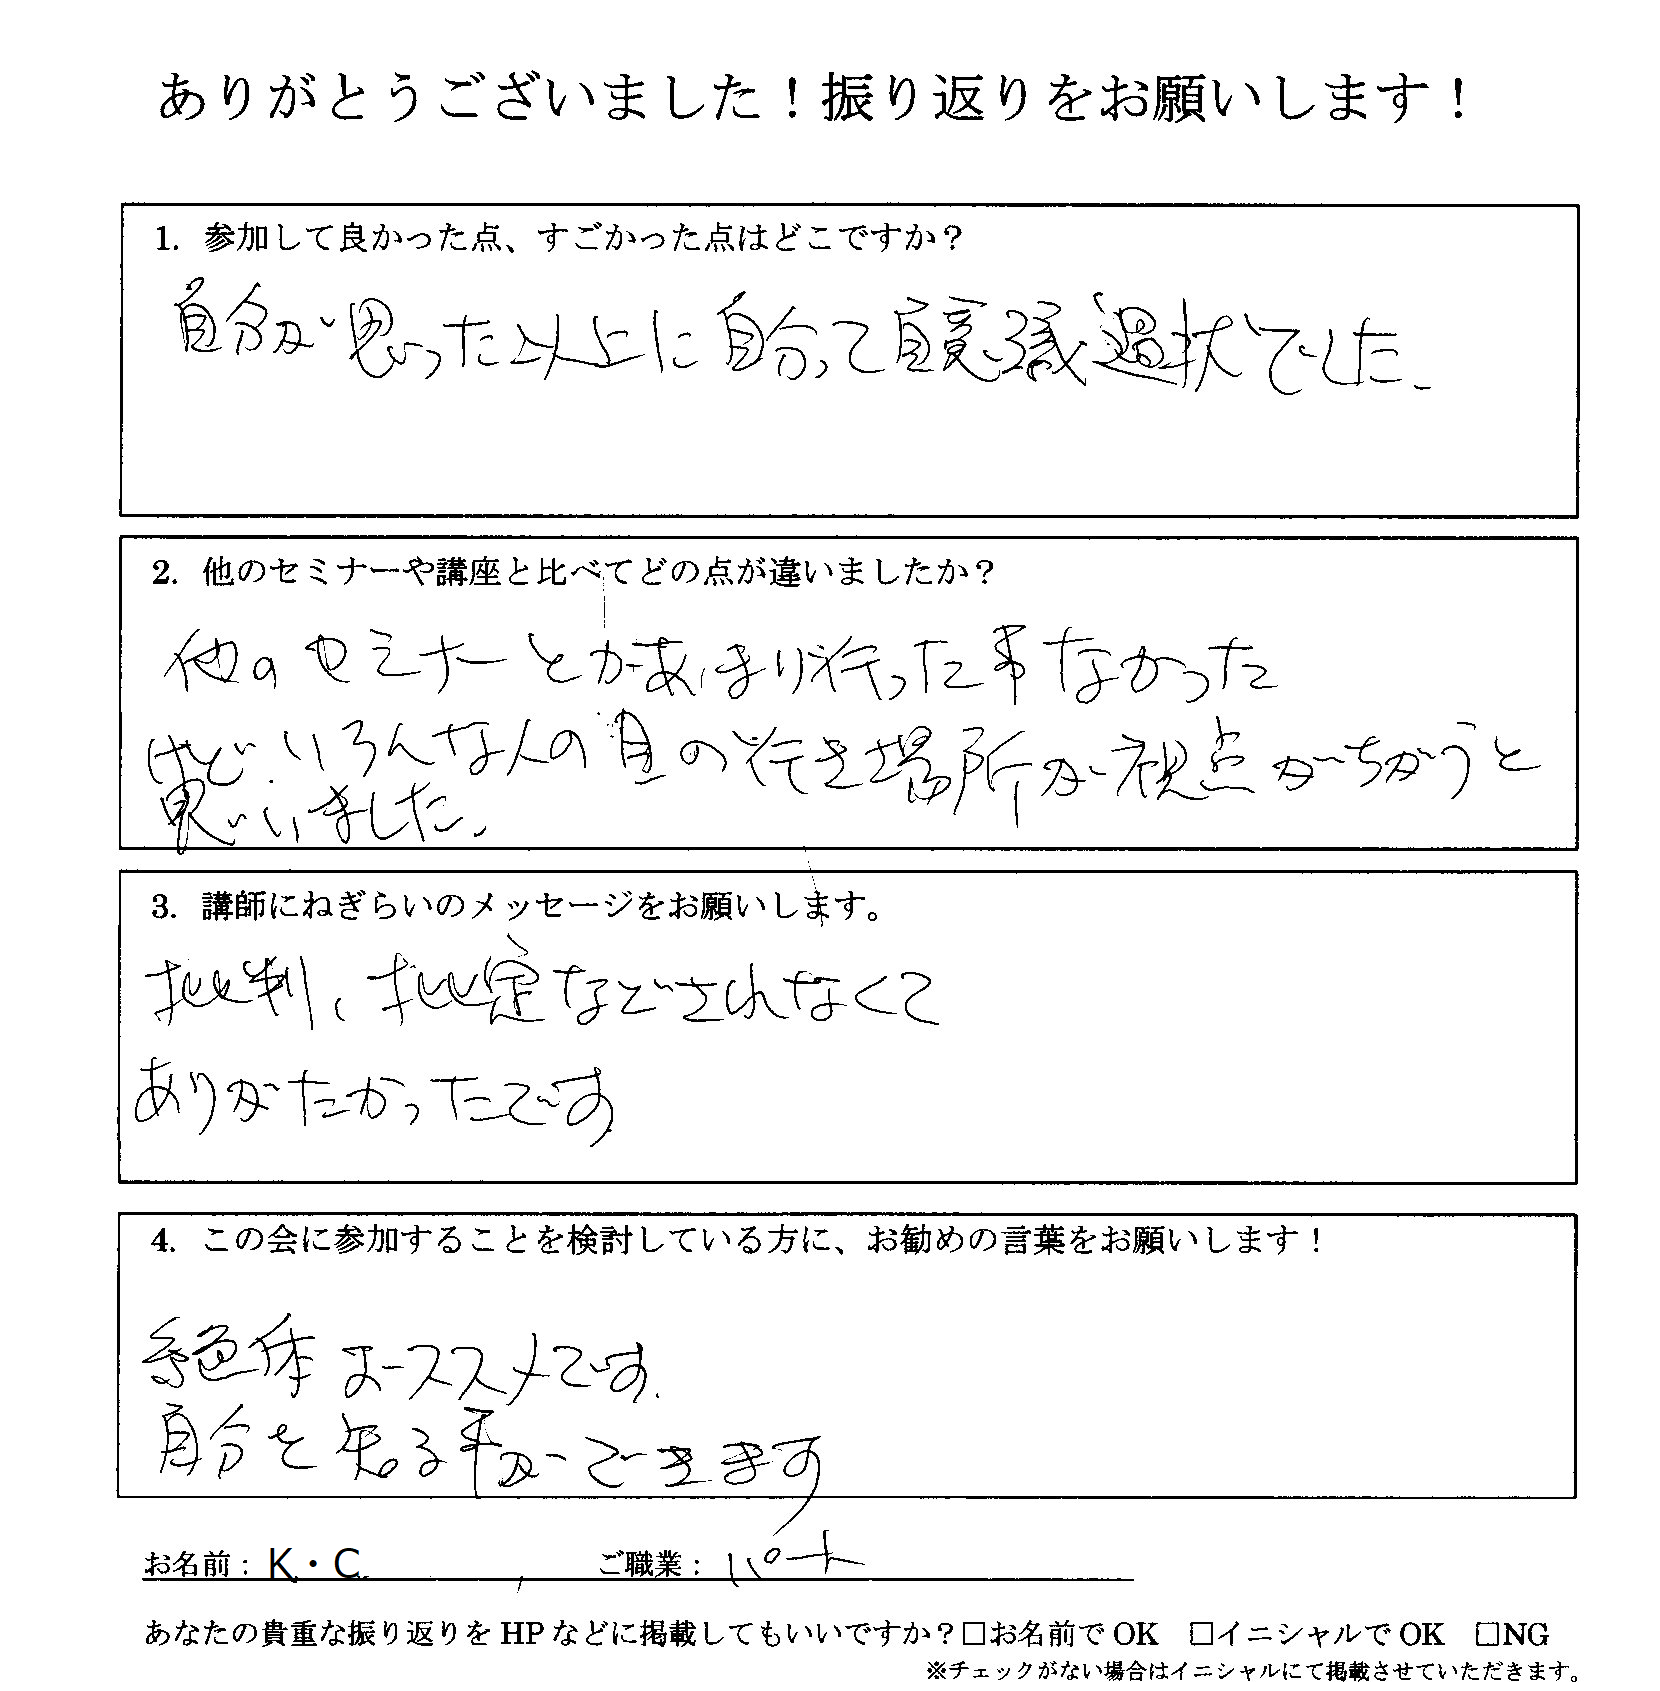 ありがとうございました！振り返りをお願いします！
1. 参加して良かった点、すごかった点はどこですか？
自分が思った以上に自分って自意識過状でした。
2. 他のセミナーや講座と比べてどの点が違いましたか？
他のセミナーとかあまり行った事なかった
けど、いろんな人の目の行き場所が視点がちがうと
思いました。
3. 講師にねぎらいのメッセージをお願いします。
批判、批定などされなくて
ありがたかったです
4. この会に参加することを検討している方に、お勧めの言葉をお願いします！
絶体オススメです。
自分を知る事ができます
お名前：K・C ご職業：パート
あなたの貴重な振り返りを HP などに掲載してもいいですか？□お名前で OK □イニシャルで OK □NG
※チェックがない場合はイニシャルにて掲載させていただきます。